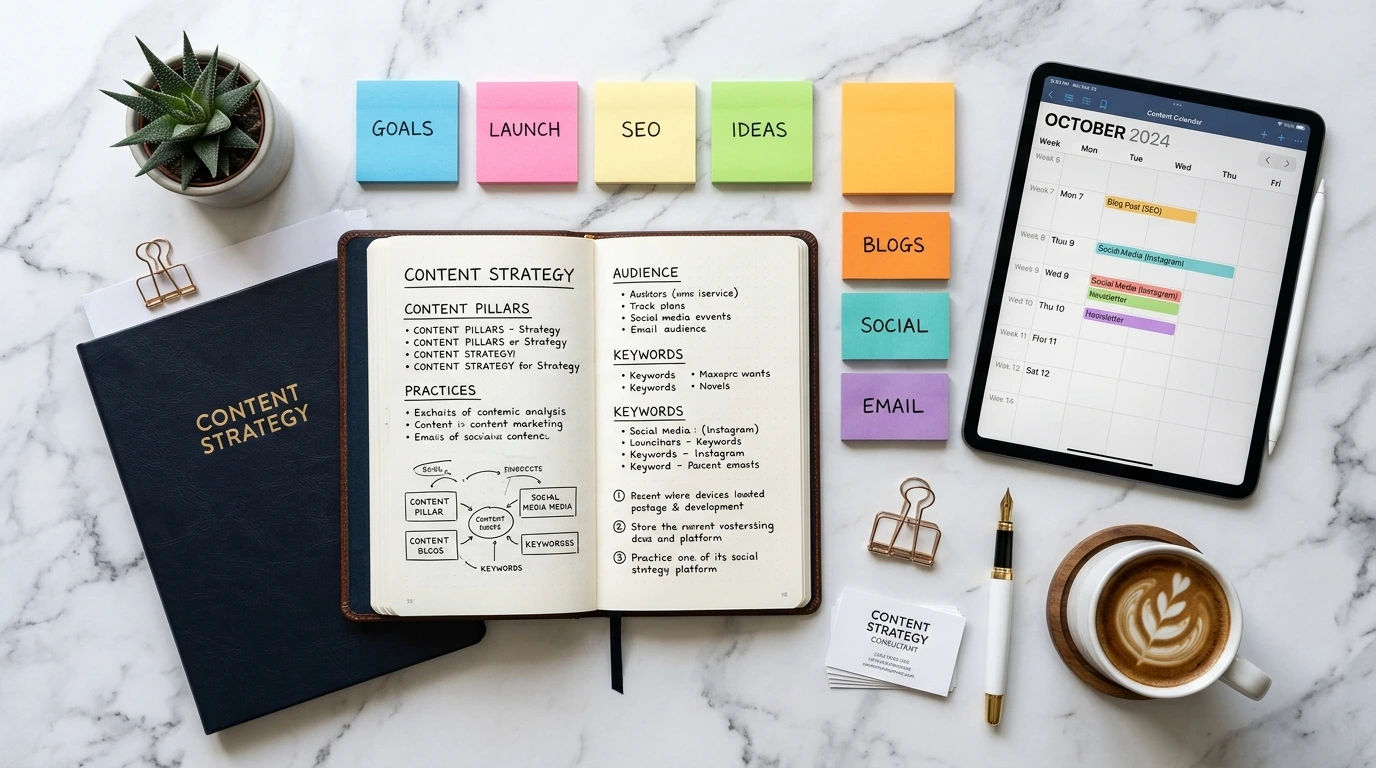 GOALS
LAUNCH
SEO
IDEAS
BLOGS
SOCIAL
EMAIL
CONTENT
STRATEGY
CONTENT STRATEGY
CONTENT PILLARS
• CONTENT PILLARS - Strategy
• CONTENT PILLARS or Strategy
• CONTENT STRATEGY!
• CONTENT STRATEGY for Strategy
PRACTICES
• of contemic analysis
• Content is content marketing
• Emails of
FINBOCCTS
CONTENT
PILLAR
SOCIAL
MEDIA MEDIA
CONTENT
CONTENT
BLCOS
KEYWORGBS
KEYWORDS
AUDIENCE
• (iservice)
• Track plans
• Social media events
• Email audience
KEYWORDS
• Keywords • wants
• Keywords • Novels
KEYWORDS
• Social Media : (Instagram)
• - Keywords
• Keywords - Instagram
• Keyword - emasts
① Recent where devices loaded
postage & development
② Store the
and platform
③ Practice one of its social
strategy platform
Content Calendar
OCTOBER 2024
Week Mon Tue Wed Thu Fri
Week 6
Week 7 Mon 7 Blog Post (SEO)
Week 8 Thu 9 Social Media (Instagram)
Week 9 Wed 9 Social Media (Instagram)
Newsletter
Wed 10 Thu 10
Week 11 11
12 Sat 12
CONTENT
STRATEGY
CONSULTANT